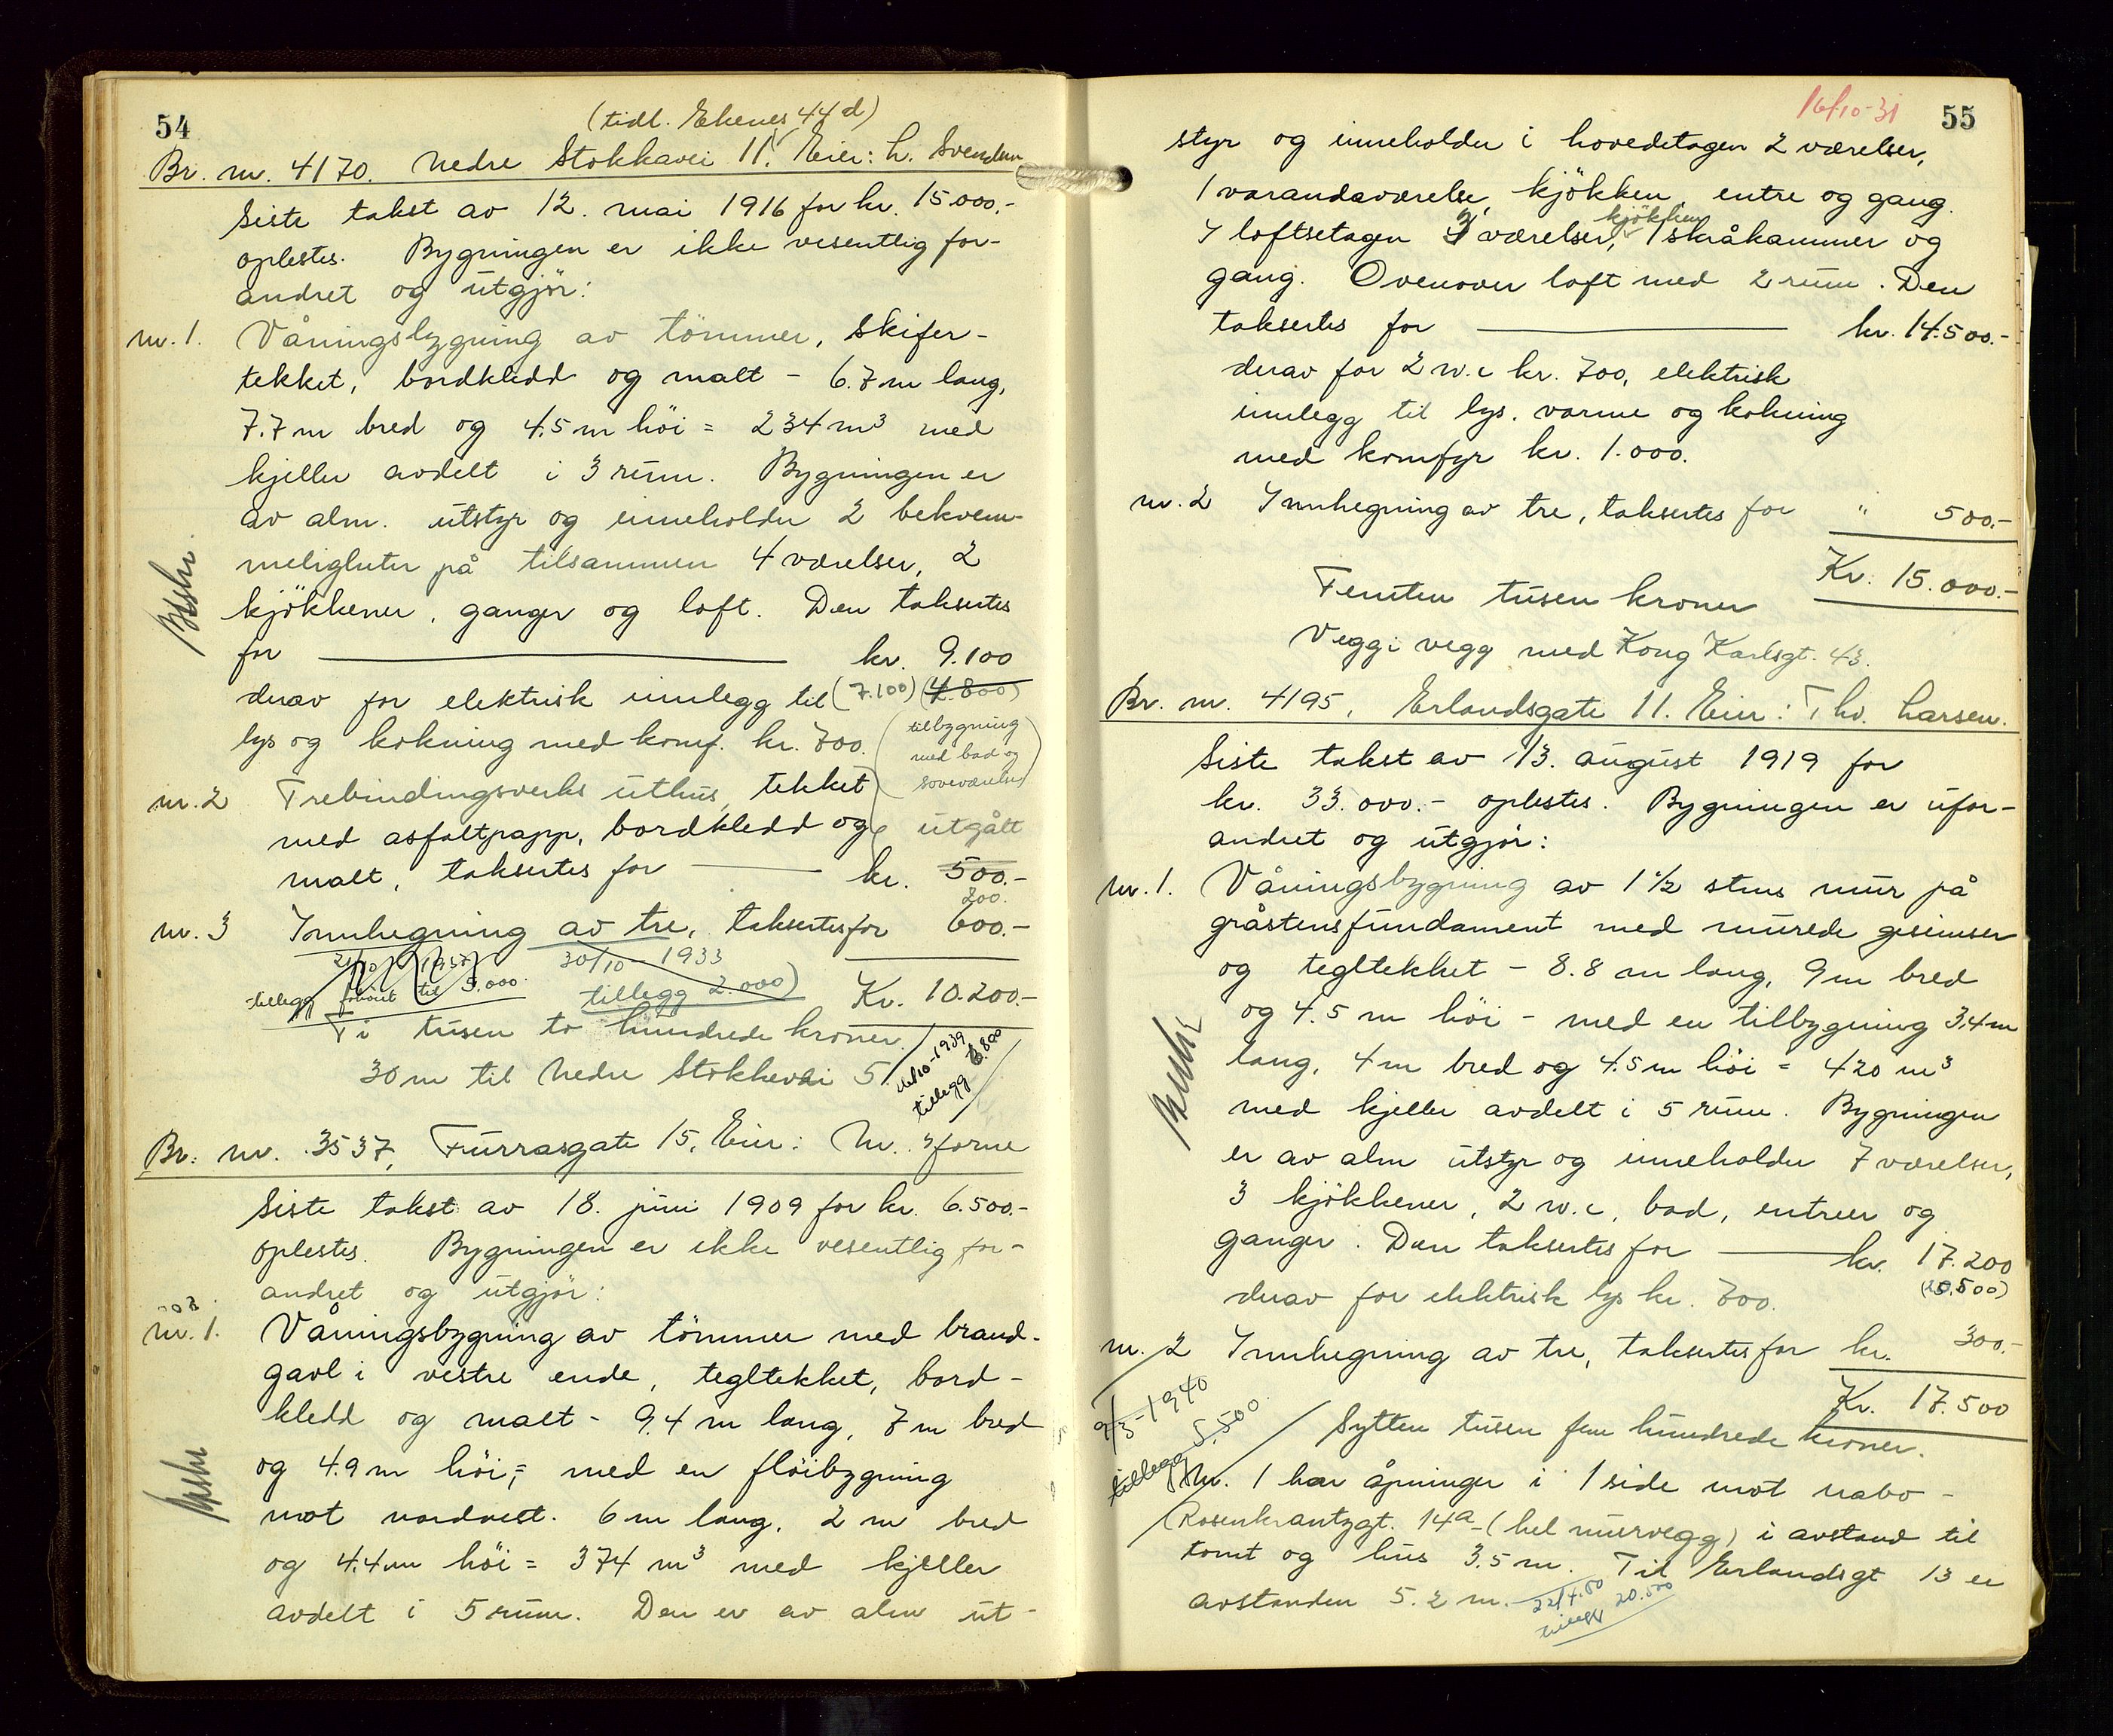 54
(tidl. Ekenes 44 d)
Br. nr. 4170. Nedre Stokkavei 11. Eier: L. Svendsen
Siste takst av 12. mai 1916 for kr. 15.000.-
oplestes. Bygningen er ikke vesentlig for-
andret og utgjør:
nr. 1. Våningsbygning av tömmer, skifer-
tekket, bordkledd og malt - 6.7 m lang,
7.7 m bred og 4.5 m höi = 234 m³ med
kjeller avdelt i 3 rum. Bygningen er
av alm. utstyr og inneholder 2 bekvem-
meligheter på tilsammen 4 værelser, 2
kjökkener, ganger og loft. Den taksertes
for kr. 9.100
derav for elektrisk innlegg til (7.100) (4.800)
lys og kokning med komf. kr. 700. (tilbygning
med bad og
soveværelse)
nr. 2 Trebindingsverks uthus, tekket
med asfaltpapp, bordkledd og utgått
malt, taksertes for kr. 500.-
200.
nr. 3 Innhegning av tre, taksertes for 600.-
21/10 1937 30/10 - 1933
tillegg forhöiet til 5.000 tillegg 2.000) Kr. 10.200.-
Ti tusen to hundrede kroner.
30 m til Nedre Stokkevei 5
/10-1939
tillegg 6.800
Br. nr. 3537, Furrasgate 15, Eier: M.
Siste takst av 18. juni 1909 for kr. 6.500.-
oplestes. Bygningen er ikke vesentlig for-
andret og utgjör:
nr. 1. Våningsbygning av tömmer med brand-
gavl i vestre ende, tegltekket, bord-
kledd og malt - 9.4 m lang, 7 m bred
og 4.9 m höi, = med en flöibygning
mot nordvest. 6 m lang, 2 m bred
og 4.4 m höi = 374 m³ med kjeller
avdelt i 5 rum. Den er av alm ut-
16/10-31 55
styr og inneholder i hovedetagen 2 værelser,
1 varandaværelse, kjökken, entre og gang.
kjökken
I loftsetagen 3 værelser, 1 skråkammer og
gang. Ovenover loft med 2 rum. Den
taksertes for kr. 14.500.-
derav for 2 w.c kr. 700, elektrisk
innlegg til lys. varme og kokning
med komfyr kr. 1.000.
nr. 2 Innhegning av tre, taksertes for " 500.-
Kr. 15.000.-
Femten tusen kroner
Vegg i vegg med Kong Karlsgt. 43.
Br. nr. 4195. Erlandsgate 11. Eier: Thv. Larsen.
Siste takst av 13. august 1919 for
kr. 33.000.- oplestes. Bygningen er ufor-
andret og utgjör:
nr. 1. Våningsbygning av 1 1/2 stens mur på
gråstensfundament med murede gesimser
og tegltekket - 8.8 m lang, 9 m bred
og 4.5 m höi - med en tilbygning 3,4 m
lang, 4 m bred og 4.5 m höi = 420 m³
med kjeller avdelt i 5 rum. Bygningen
er av alm utstyr og inneholder 7 værelser,
3 kjökkener, 2 w.c, bad, entreer og
ganger. Den taksertes for kr. 17.200
derav for elektrisk lys kr. 700.
nr. 2 Innhegning av tre, taksertes for kr. 300.-
Kr. 17.500
9/3-1940
tillegg 5.500
Sytten tusen fem hundrede kroner.
Nr. 1 har åpninger i 1 side mot nabo -
Rosenkrantzgt. 14a - (hel murvegg) i avstand til
tomt og hus 3.5 m. Til Erlandsgt 13 er
avstanden 5.2 m. 22/4.50
tillegg 20.500